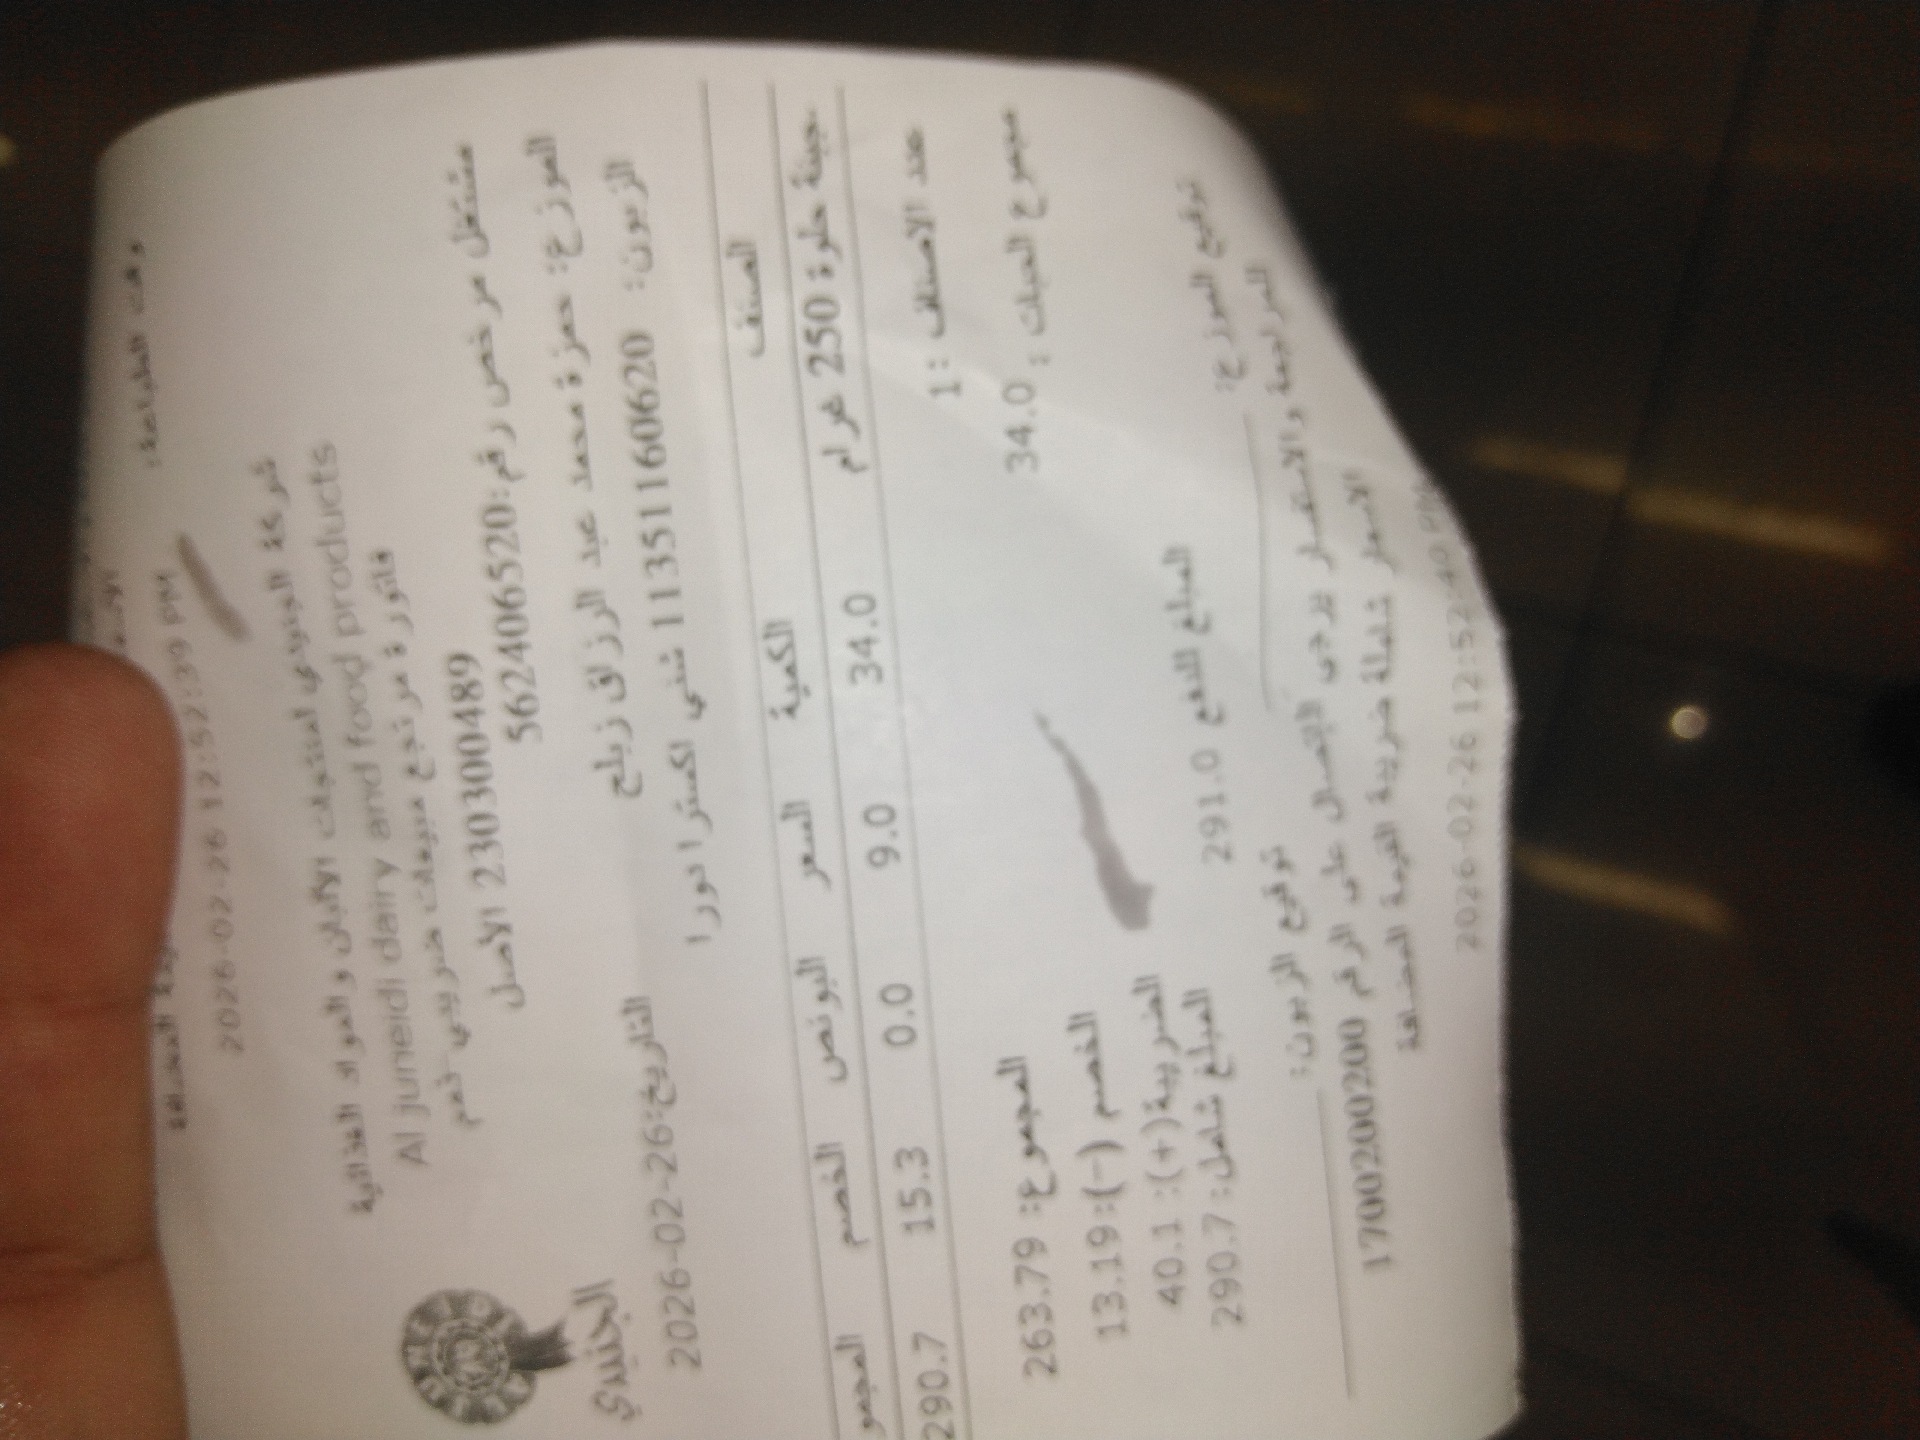 وقت الطباعة:
2026-02-26 12:52:39 PM
شركة الجنيدي لمنتوجات الألبان و المواد الغذائية
Al juneidi dairy and food products
فاتورة مرتجع مبيعات ضريبي نعم
230300489 الأصل
مشتغل مرخص رقم:562406520
الموزع: حمزة محمد عبد الرزاق زبلح
الجنيدي
الزبون: 11351160620 شني اكسترا نورا
التاريخ:26-02-2026
الصنف الكمية السعر البونص الخصم المجمو
جبنة حلوة 250 غرام 34.0 9.0 0.0 15.3 290.7
عدد الاصناف : 1
مجموع الحبات : 34.0
المجموع: 263.79
الخصم (-): 13.19
الضريبة(+): 40.1
المبلغ شامل: 290.7
المبلغ للدفع 291.0
توقيع الموزع:
توقيع الزبون:
للمراجعة والاستفسار يرجى الاتصال على الرقم 1700200200
الاسعار شاملة ضريبة القيمة المضافة
2026-02-26 12:52:40 PM